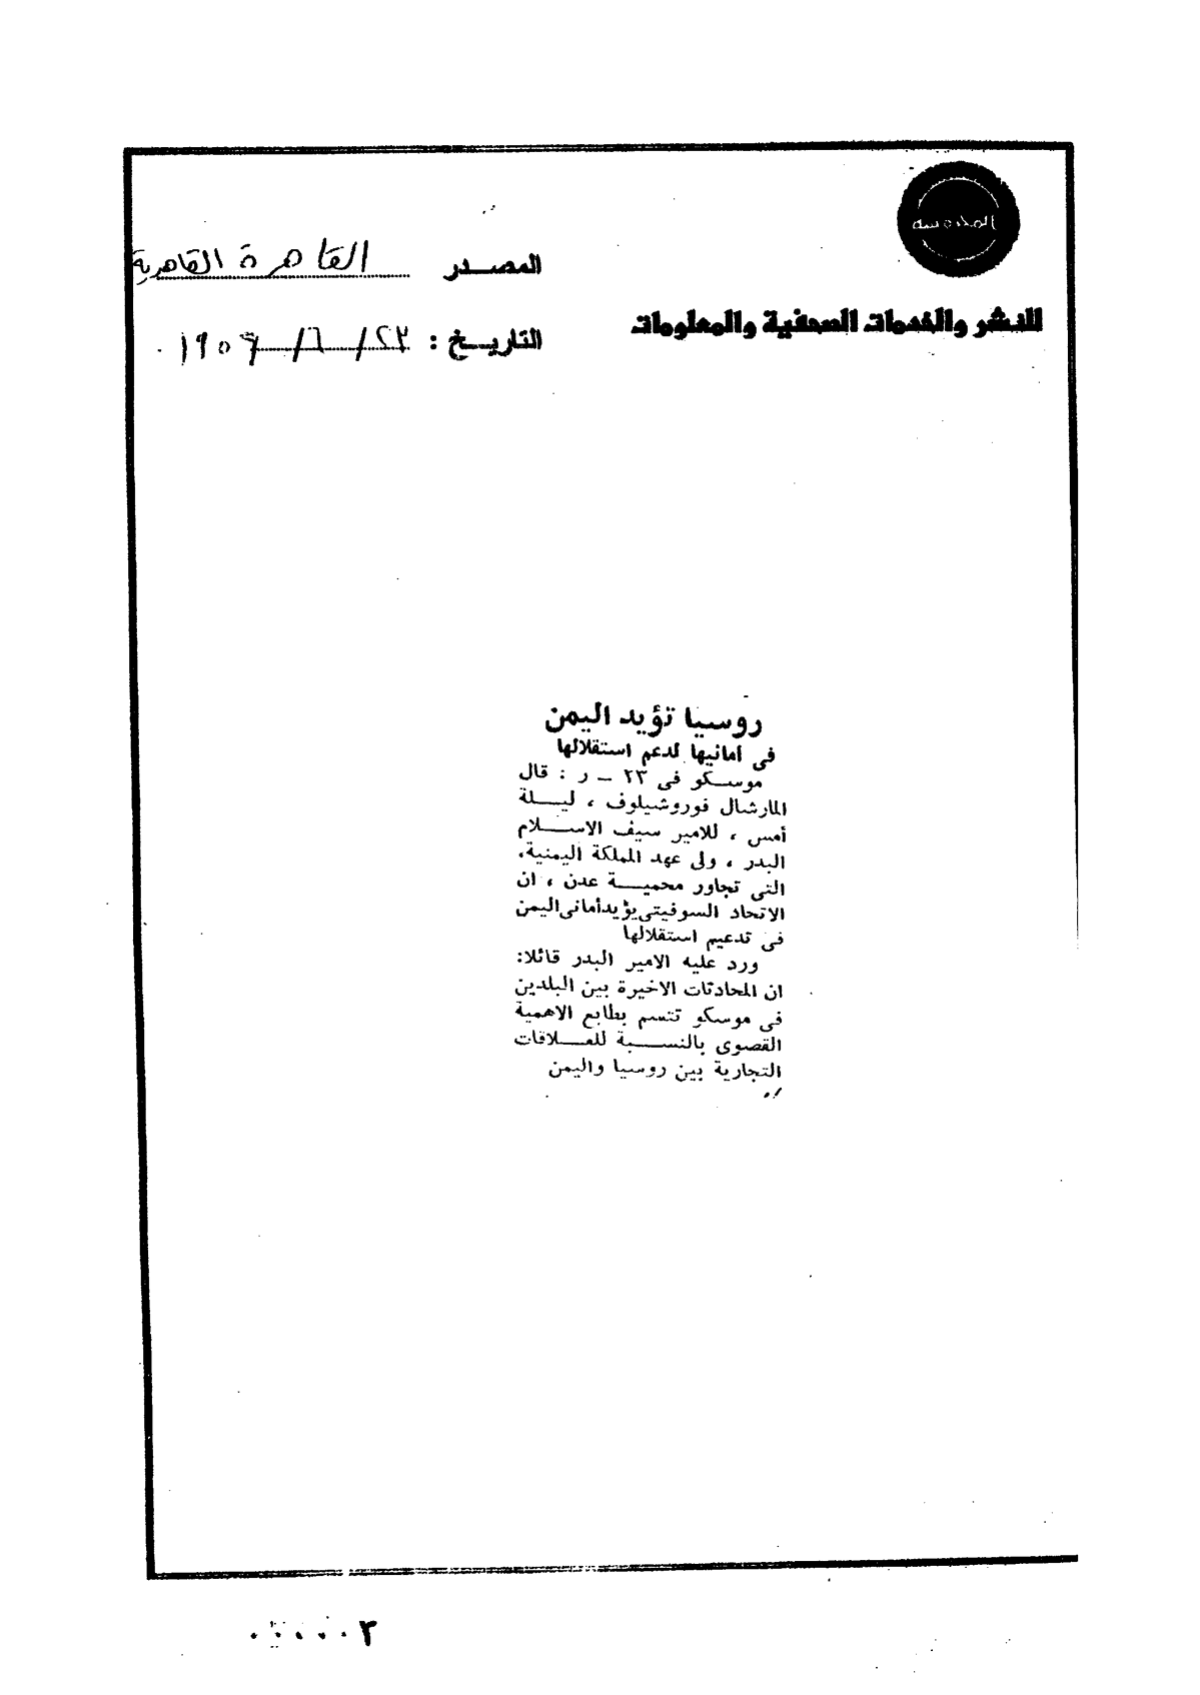 المحروسة
للنشر والخدمات الصحفية والمعلومات
المصــدر القاهرة القاهرية
التاريــخ : ٢٣ / ٦ / ١٩٥٦
روسيا تؤيد اليمن
فى أمانيها لدعم استقلالها
موسـكو فى ٢٣ ــ ر : قال
المارشال فوروشيلوف ، ليــلة
أمس ، للامير سيف الاســلام
البدر ، ولى عهد المملكة اليمنية،
التى تجاور محميــة عدن ، ان
الاتحاد السوفيتى يؤيد أمانى اليمن
فى تدعيم استقلالها
ورد عليه الامير البدر قائلا:
ان المحادثات الاخيرة بين البلدين
فى موسكو تتسم بطابع الاهمية
القصوى بالنســبة للعــلاقات
التجارية بين روسيا واليمن